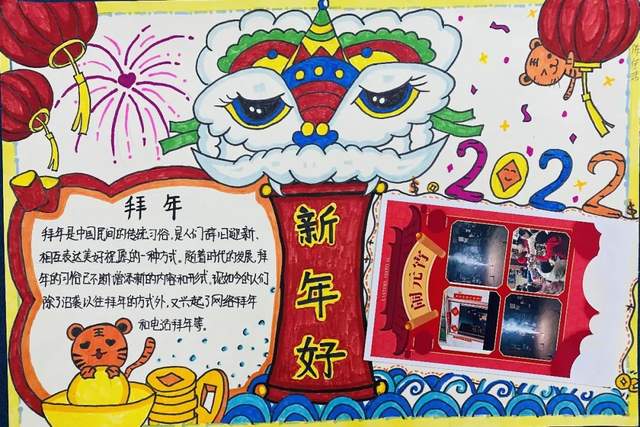 2022
拜年
拜年是中国民间的传统习俗,是人们辞旧迎新、
相互表达美好祝愿的一种方式。随着时代的发展,拜
年的习俗已不断增添新的内容和形式,现如今的人们
除了沿袭以往拜年的方式外,又兴起了网络拜年
和电话拜年等。
新年好
闹元宵